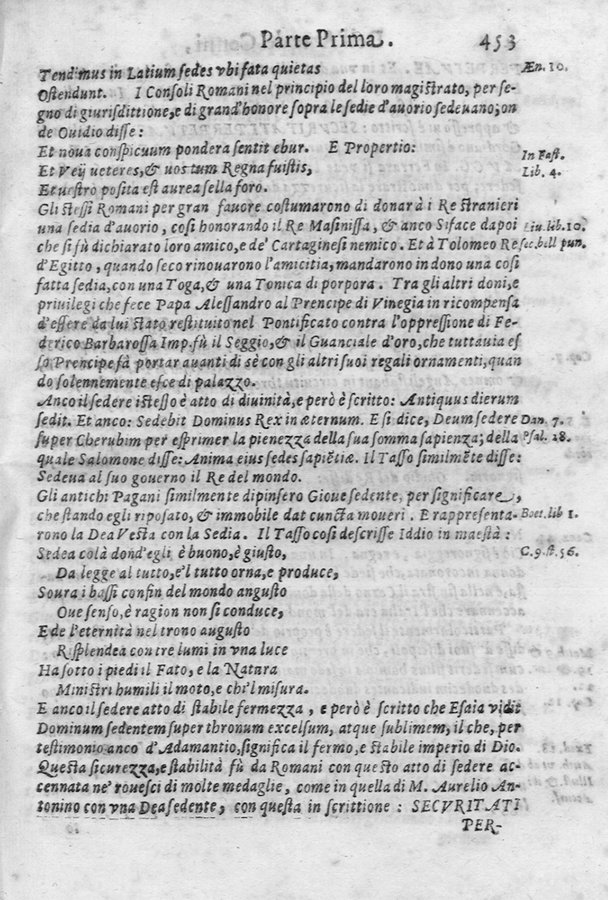 Parte Prima. 453
Tendimus in Latium sedes vbi fata quietas Æn. 10.
Ostendunt. I Consoli Romani nel principio del loro magistrato, per se-
gno di giurisdittione, e di grand'honore sopra le sedie d'auorio sedeuano; on
de Ouidio disse:
Et noua conspicuum pondera sentit ebur. E Propertio: In Fast.
Et Veÿ ueteres, & uos tum Regna fuistis, Lib. 4.
Et uestro posita est aurea sella foro.
Gli stessi Romani per gran fauore costumarono di donar à i Re stranieri
una sedia d'auorio, cosi honorando il Re Masinissa, & anco Siface dapoi Liu. lib. 10.
che si fù dichiarato loro amico, e de' Cartaginesi nemico. Et à Tolomeo Re sec. bell pun.
d'Egitto, quando seco rinouarono l'amicitia, mandarono in dono una cosi
fatta sedia, con una Toga, & una Tonica di porpora. Tra gli altri doni, e
priuilegi che fece Papa Alessandro al Prencipe di Vinegia in ricompensa
d'essere da lui stato restituito nel Pontificato contra l'oppressione di Fe-
derico Barbarossa Imp. fù il Seggio, & il Guanciale d'oro, che tuttauia es
so Prencipe fà portar auanti di sè con gli altri suoi regali ornamenti, quan
do solennemente esce di palazzo.
Anco il sedere istesso è atto di diuinità, e però è scritto: Antiquus dierum
sedit. Et anco: Sedebit Dominus Rex in æternum. E si dice, Deum sedere Dan. 7.
super Cherubim per esprimer la pienezza della sua somma sapienza; della Psal. 28.
quale Salomone disse: Anima eius sedes sapiẽtiæ. Il Tasso similmẽte disse:
Sedeua al suo gouerno il Re del mondo.
Gli antichi Pagani similmente dipinsero Gioue sedente, per significare,
che stando egli riposato, & immobile dat cuncta moueri. E rappresenta- Boet. lib 1.
rono la Dea Vesta con la Sedia. Il Tasso cosi descrisse Iddio in maestà:
Sedea colà dond'egli è buono, è giusto, C. 9. st. 56.
Da legge al tutto, e'l tutto orna, e produce,
Soura i bassi confin del mondo angusto
Oue senso, è ragion non si conduce,
E de l'eternità nel trono augusto
Risplendea con tre lumi in vna luce
Ha sotto i piedi il Fato, e la Natura
Ministri humili il moto, e chi'l misura.
E anco il sedere atto di stabile fermezza, e però è scritto che Esaia vidit
Dominum sedentem super thronum excelsum, atque sublimem, il che, per
testimonio anco d'Adamantio, significa il fermo, e stabile imperio di Dio.
Questa sicurezza, e stabilità fù da Romani con questo atto di sedere ac-
cennata ne' rouesci di molte medaglie, come in quella di M. Aurelio An-
tonino con vna Dea sedente, con questa in scrittione: SECVRITATI
PER-